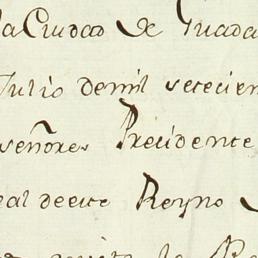 la Ciudad de Guada
Julio demil setecien
señores Presidente
eal deeste Reyno